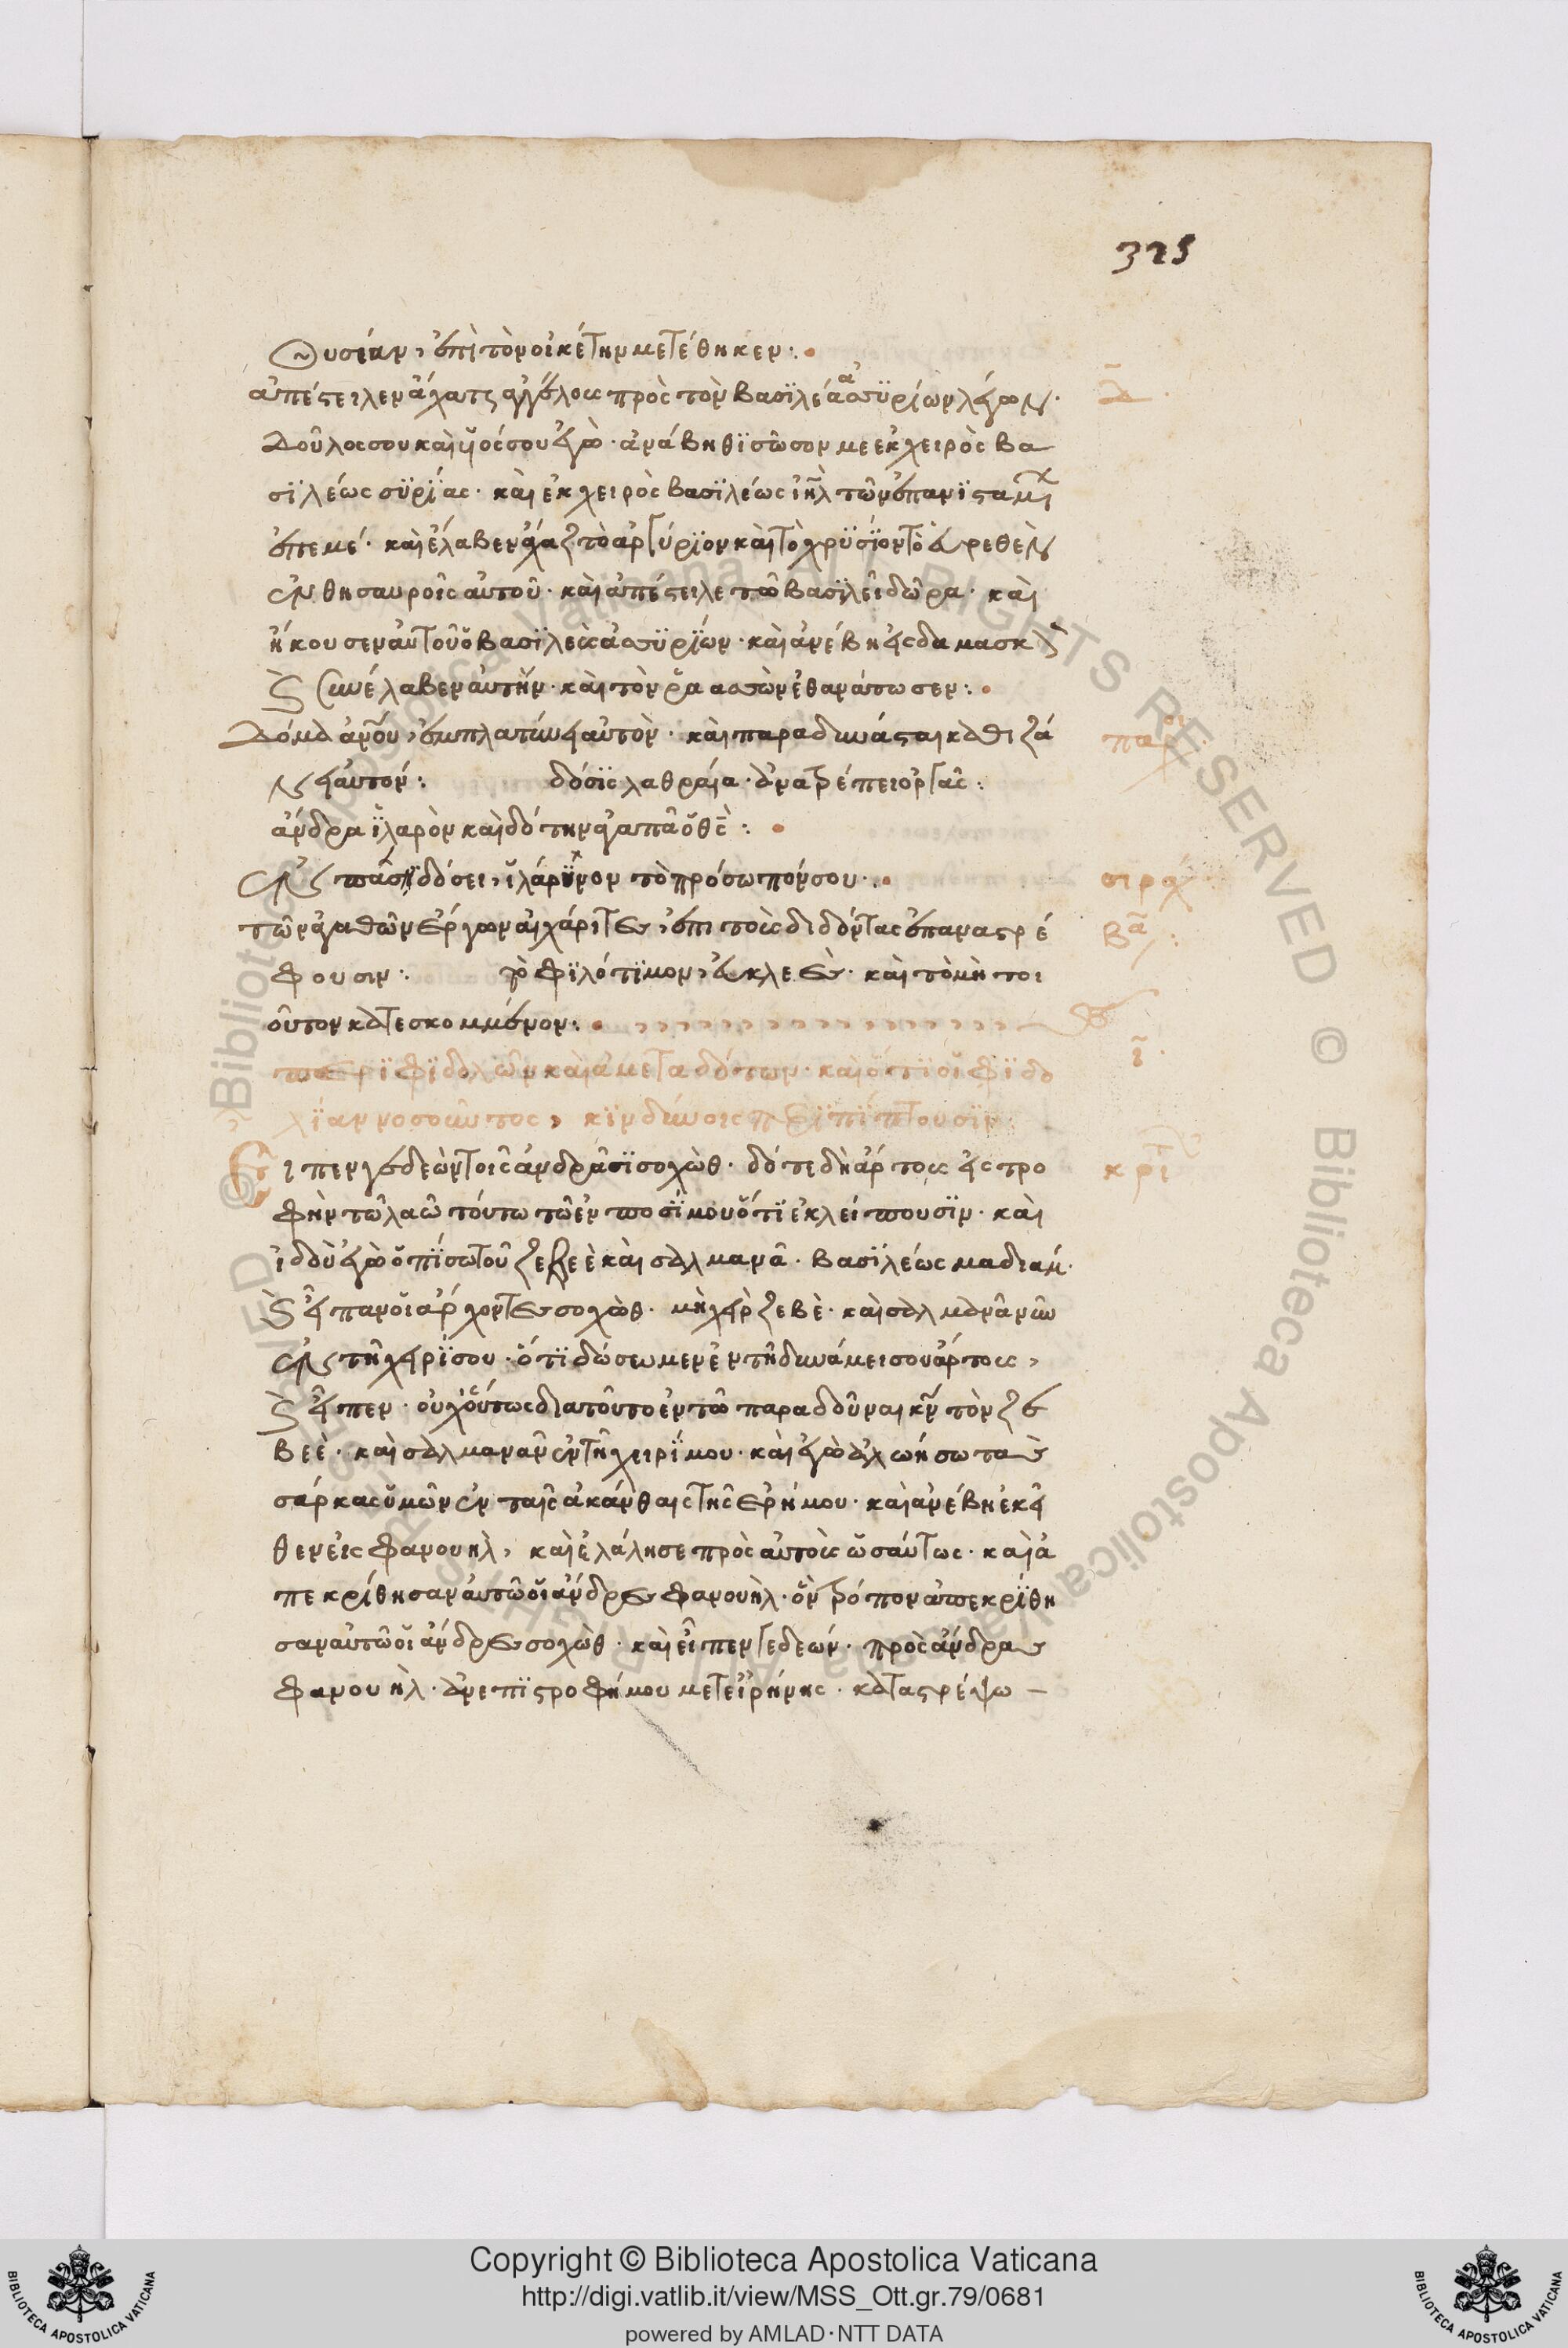 325
θυσίαν, ἐπὶ τὸν οἰκέτην μετέθηκεν:
ἀπέστειλεν ἄχαζ ἀγγέλους πρὸς τὸν βασϊλέα ἀσσϋρίων λέγων.
δ
δοῦλος σου καὶ υἱός σου ἐγὼ· ἀνάβηθϊ σῶσον με ἐκ χειρὸς βα
σϊλέως σϋρίας· καὶ ἐκ χειρὸς βασϊλέως ἰηλ τῶν ἐπανϊσταμ
ἐπ ἐμέ· καὶ ἔλαβεν ἄχαζ τὸ ἀργύριον καὶ τὸ χρϋσίον τὸ εὑρεθὲν
ἐν θησαυροῖς αὐτοῦ· καὶ ἀπέστειλε τῶ βασϊλεῖ δῶρα· καὶ
ἤκουσεν αὐτοῦ ὁ βασϊλεὺς ἀσσϋρίων· καὶ ἀνέβη εἰς δαμασκὸν
καὶ συνέλαβεν αὐτὴν· καὶ τὸν ῥαασσὼν ἐθανάτωσεν:
δόμα ἀνου, ἐμπλατύνει αὐτὸν· καὶ παρὰ δυνάσταις καθιζά
παροι
νει αὐτόν: δόσϊς λαθραία· ἀνατρέπει ὀργὰς:
ἄνδρα ἱλαρὸν καὶ δότην ἀγαπᾶ ὁ θς:
ἐν πάση δόσει, ἱλάρυνον τὸ πρόσωπόν σου.
σιραχ
τῶν ἀγαθῶν ἔργων αἱ χάριτες, ἐπὶ τοὺς διδόντας ἐπαναστρέ
βα:
φουσιν: τὸ φϊλότϊμον, εὐκλεὲς· καὶ τὸ μὴ τοι
οῦτον κατεσκομμένον:
περὶ φϊδωλῶν καὶ ἀμεταδότων· καὶ ὅτϊ οἱ φϊδω
ι
λίαν νοσοῦντες, κϊνδύνοις περϊπίπτουσϊν
Εἶπεν γεδεὼν τοῖς ἀνδράσϊ σοχὼθ· δότε δὴ ἄρτους εἰς τρο
κριτ
φὴν τῶ λαῶ τούτω τῶ ἐν ποσί μου ὅτϊ ἐκλείπουσϊν· καὶ
ἰδοὺ ἐγὼ ὀπίσω τοῦ ζεβεὲ καὶ σαλμανᾶ· βασϊλέως μαδιάμ.
καὶ εἶπαν οἱ ἄρχοντες σοχὼθ· μὴ χεὶρ ζεβὲ· καὶ σαλμανᾶ νῦν
ἐν τῆ χειρί σου· ὅτϊ δώσωμεν ἐν τῆ δυνάμει σου ἄρτους,
καὶ εἶπεν· οὐχ οὕτως διατοῦτο ἐν τῶ παραδοῦναι κν τὸν ζε
βεὲ· καὶ σαλμανᾶν ἐν τῆ χειρί μου· καὶ ἐγὼ ἀλωήσω τὰς
σάρκας ὑμῶν ἐν ταῖς ἀκάνθαις τῆς ἐρήμου· καὶ ἀνέβη ἐκεῖ
θεν εἰς φανουηλ, καὶ ἐλάλησε πρὸς αὐτοὺς ὡσαύτως· καὶ ἀ
πεκρίθησαν αὐτῶ οἱ ἄνδρες φανουὴλ· ὃν τρόπον ἀπεκρίθη
σαν αὐτῶ οἱ ἄνδρες σοχὼθ· καὶ εἶπεν γεδεών· πρὸς ἄνδρας
φανουὴλ· ἐν ἐπϊστροφῆ μου μετ εἰρήνης· καταστρέψω
© Biblioteca Apostolica Vaticana ALL RIGHTS RESERVED © Biblioteca Apostolica Vaticana ALL RIGHTS RESERVED
Copyright © Biblioteca Apostolica Vaticana
http://digi.vatlib.it/view/MSS_Ott.gr.79/0681
powered by AMLAD·NTT DATA
BIBLIOTECA APOSTOLICA VATICANA
BIBLIOTECA APOSTOLICA VATICANA